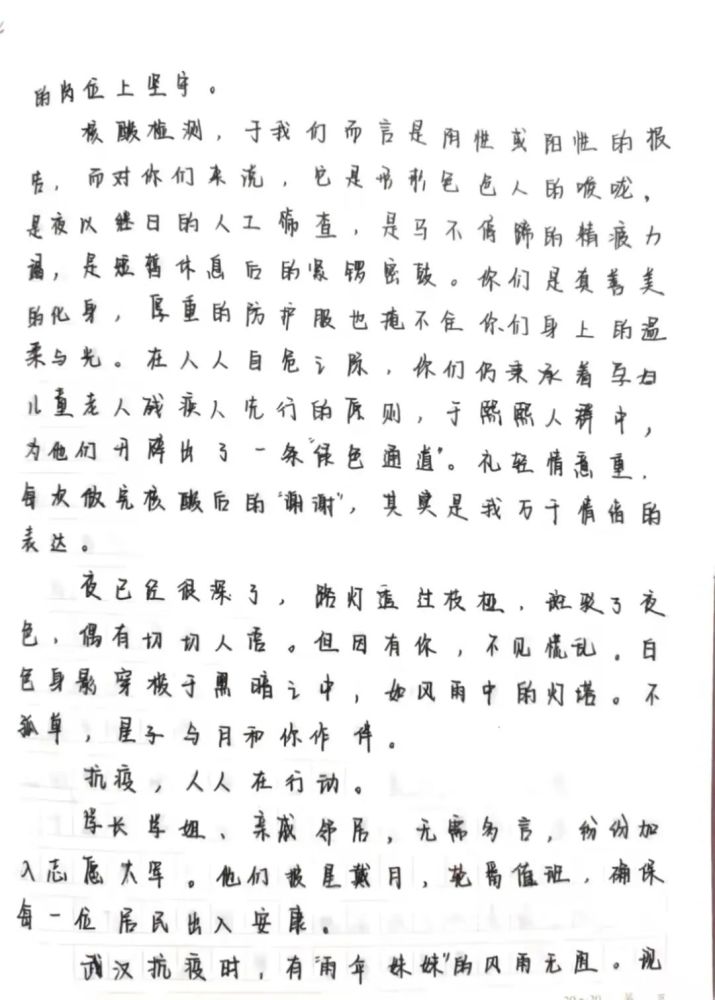 的岗位上坚守。
核酸检测，于我们而言是阴性或阳性的报
告，而对你们来说，它是形形色色人的喉咙，
是夜以继日的人工筛查，是马不停蹄的精疲力
竭，是短暂休息后的紧锣密鼓。你们是真善美
的化身，厚重的防护服也掩不住你们身上的温
柔与光。在人人自危之际，你们仍秉承着孕妇
儿童老人残疾人先行的原则，于熙熙人群中，
为他们开辟出了一条“绿色通道”。礼轻情意重，
每次做完核酸后的“谢谢”，其实是我万千情愫的
表达。
夜已经很深了，路灯透过枝桠，斑驳了夜
色，偶有切切人语。但因有你，不见慌乱。白
色身影穿梭于黑暗之中，如风雨中的灯塔。不
孤单，星子与月和你作伴。
抗疫，人人在行动。
学长学姐、亲戚邻居，无需多言，纷纷加
入志愿大军。他们披星戴月，轮番值班，确保
每一位居民出入安康。
武汉抗疫时，有“雨伞妹妹”的风雨无阻。现